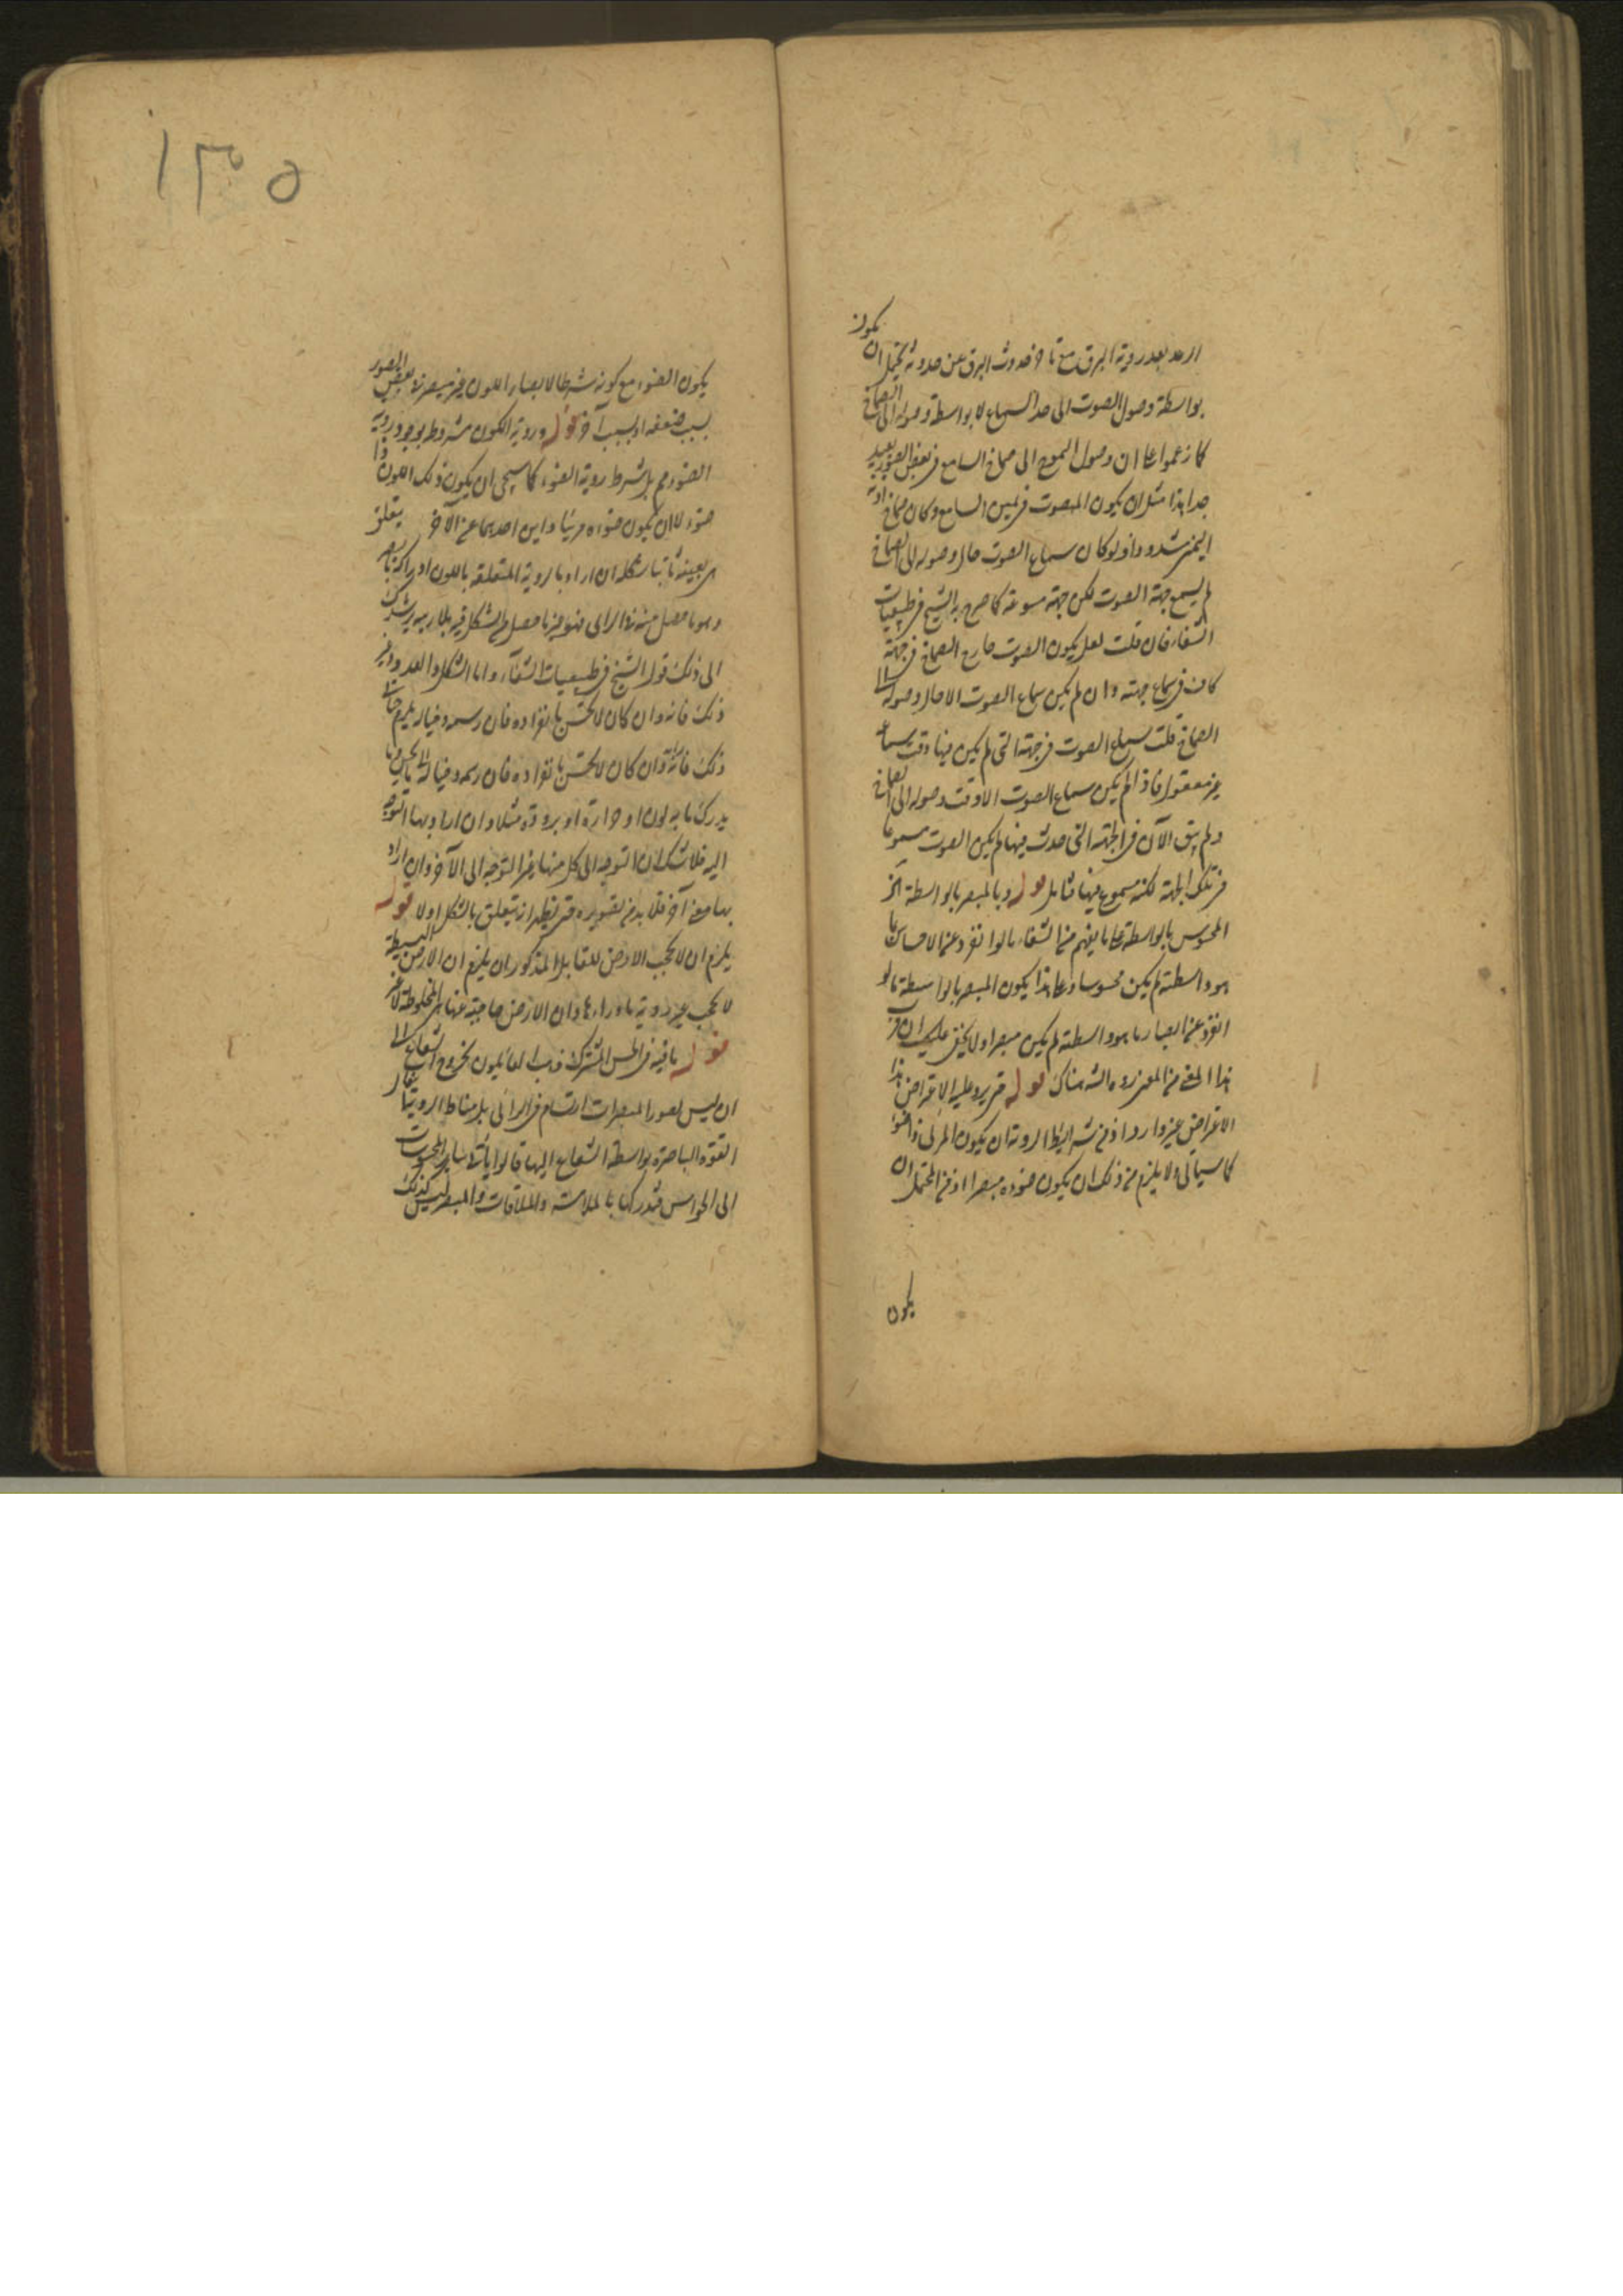 الرعد بعد روية البرق مع تاخر حدوث البرق عن حدوثه يحتمل ان يكون
بواسطة وصول الصوت الى حد السماع لا بواسطة وصوله الى الصماخ
كما زعموا على ان وصول التموج الى صماخ السامع في بعض الصور بعيد
جدا هذا مثل ان يكون المصوت في يمين السامع وكان صماخ اذنه
اليمنى مسدودا ولو كان سماع الصوت حال وصوله الى الصماخ
لم يسمع جهة الصوت لكن جهته مسموعة كما صرح به الشيخ في طبيعيات
الشفاء فان قلت لعل يكون الصوت خارج الصماخ في جهته
كاف في سماع جهته وان لم يكن سماع الصوت الا حال وصوله الى
الصماخ قلت سماع الصوت في جهته التي لم يكن فيها وقت سماعه
غير معقول فاذا لم يكن سماع الصوت الا وقت وصوله الى الصماخ
ولم يبق الآن في الجهة التي حدث فيها لم يكن الصوت مسموعا
في تلك الجهة لكنه مسموع فيها تأمل قوله وبالمبصر بالواسطة آخر
المحسوس بالواسطة على ما يفهم من الشفاء ما لو انفرد عن الاحساس بما
هو واسطته لم يكن محسوسا وعلى هذا يكون المبصر بالواسطة ما لو
انفرد عن ابصار ما هو واسطته لم يكن مبصرا ولا يخفى عليك ان
هذا المعنى من المعنى هناك قوله يرد عليه الاعتراض هذا
الاعتراض غير وارد اذ من شرائط الروية ان يكون المرئي ذا ضوء
كما سياتي ولا يلزم من ذلك ان يكون ضوءه مبصرا اذ من المحتمل ان
يكون
١٣٥
يكون الضوء مع كونه شرطا لابصار اللون غير مبصر في بعض الصور
بسبب ضعفه او بسبب آخر قوله وروية اللون مشروط بوجود روية
الضوء بل شرط روية الضوء كما سيجئ ان يكون ذلك اللون ذا
ضوء لا ان يكون ضوءه مرئيا واين احدهما عن الآخر يتعلق
بعينه ثانيا بشكله ان اراد بالروية المتعلقة باللون ادراكه بالبصر
وهو ما حصل منه في الرائي فهو غير ما حصل من الشكل فيه بلا ريب يرشدك
الى ذلك قول الشيخ في طبيعيات الشفآء واما الشكل والعدد وغير
ذلك فانه وان كان لا يحس بانفراده فان رسمه وخياله يلزم خيال
ذلك فانه وان كان لا يحس بانفراده فان رسمه وخياله
يدرك ما به لون او حرارة او برودة مثلا وان اراد بها التوجه
اليه فلا شك ان التوجه الى كل منها غير التوجه الى الآخر وان اراد
بها معنى آخر فلا بد من تصويره حتى يظهر انه يتعلق بالشكل اولا قوله
يلزم ان لا يحجب الارض للقابل المذكور ان يلزم ان الارض البسيطة
لا يحجب عن روية ما وراءها وان الارض حاجبة عنها هي المخلوطة لا غير
قوله باقية في الحس المشترك ذهب القائلون بخروج الشعاع الى
ان ليس لصور المبصرات ارتسام في الرائي بل مناط الروية
القوة الباصرة بواسطة الشعاع اليها قالوا يأتي سائر المحسوسات
الى الحواس فتدركها بالملامسة والملاقات والمبصر ليس كذلك